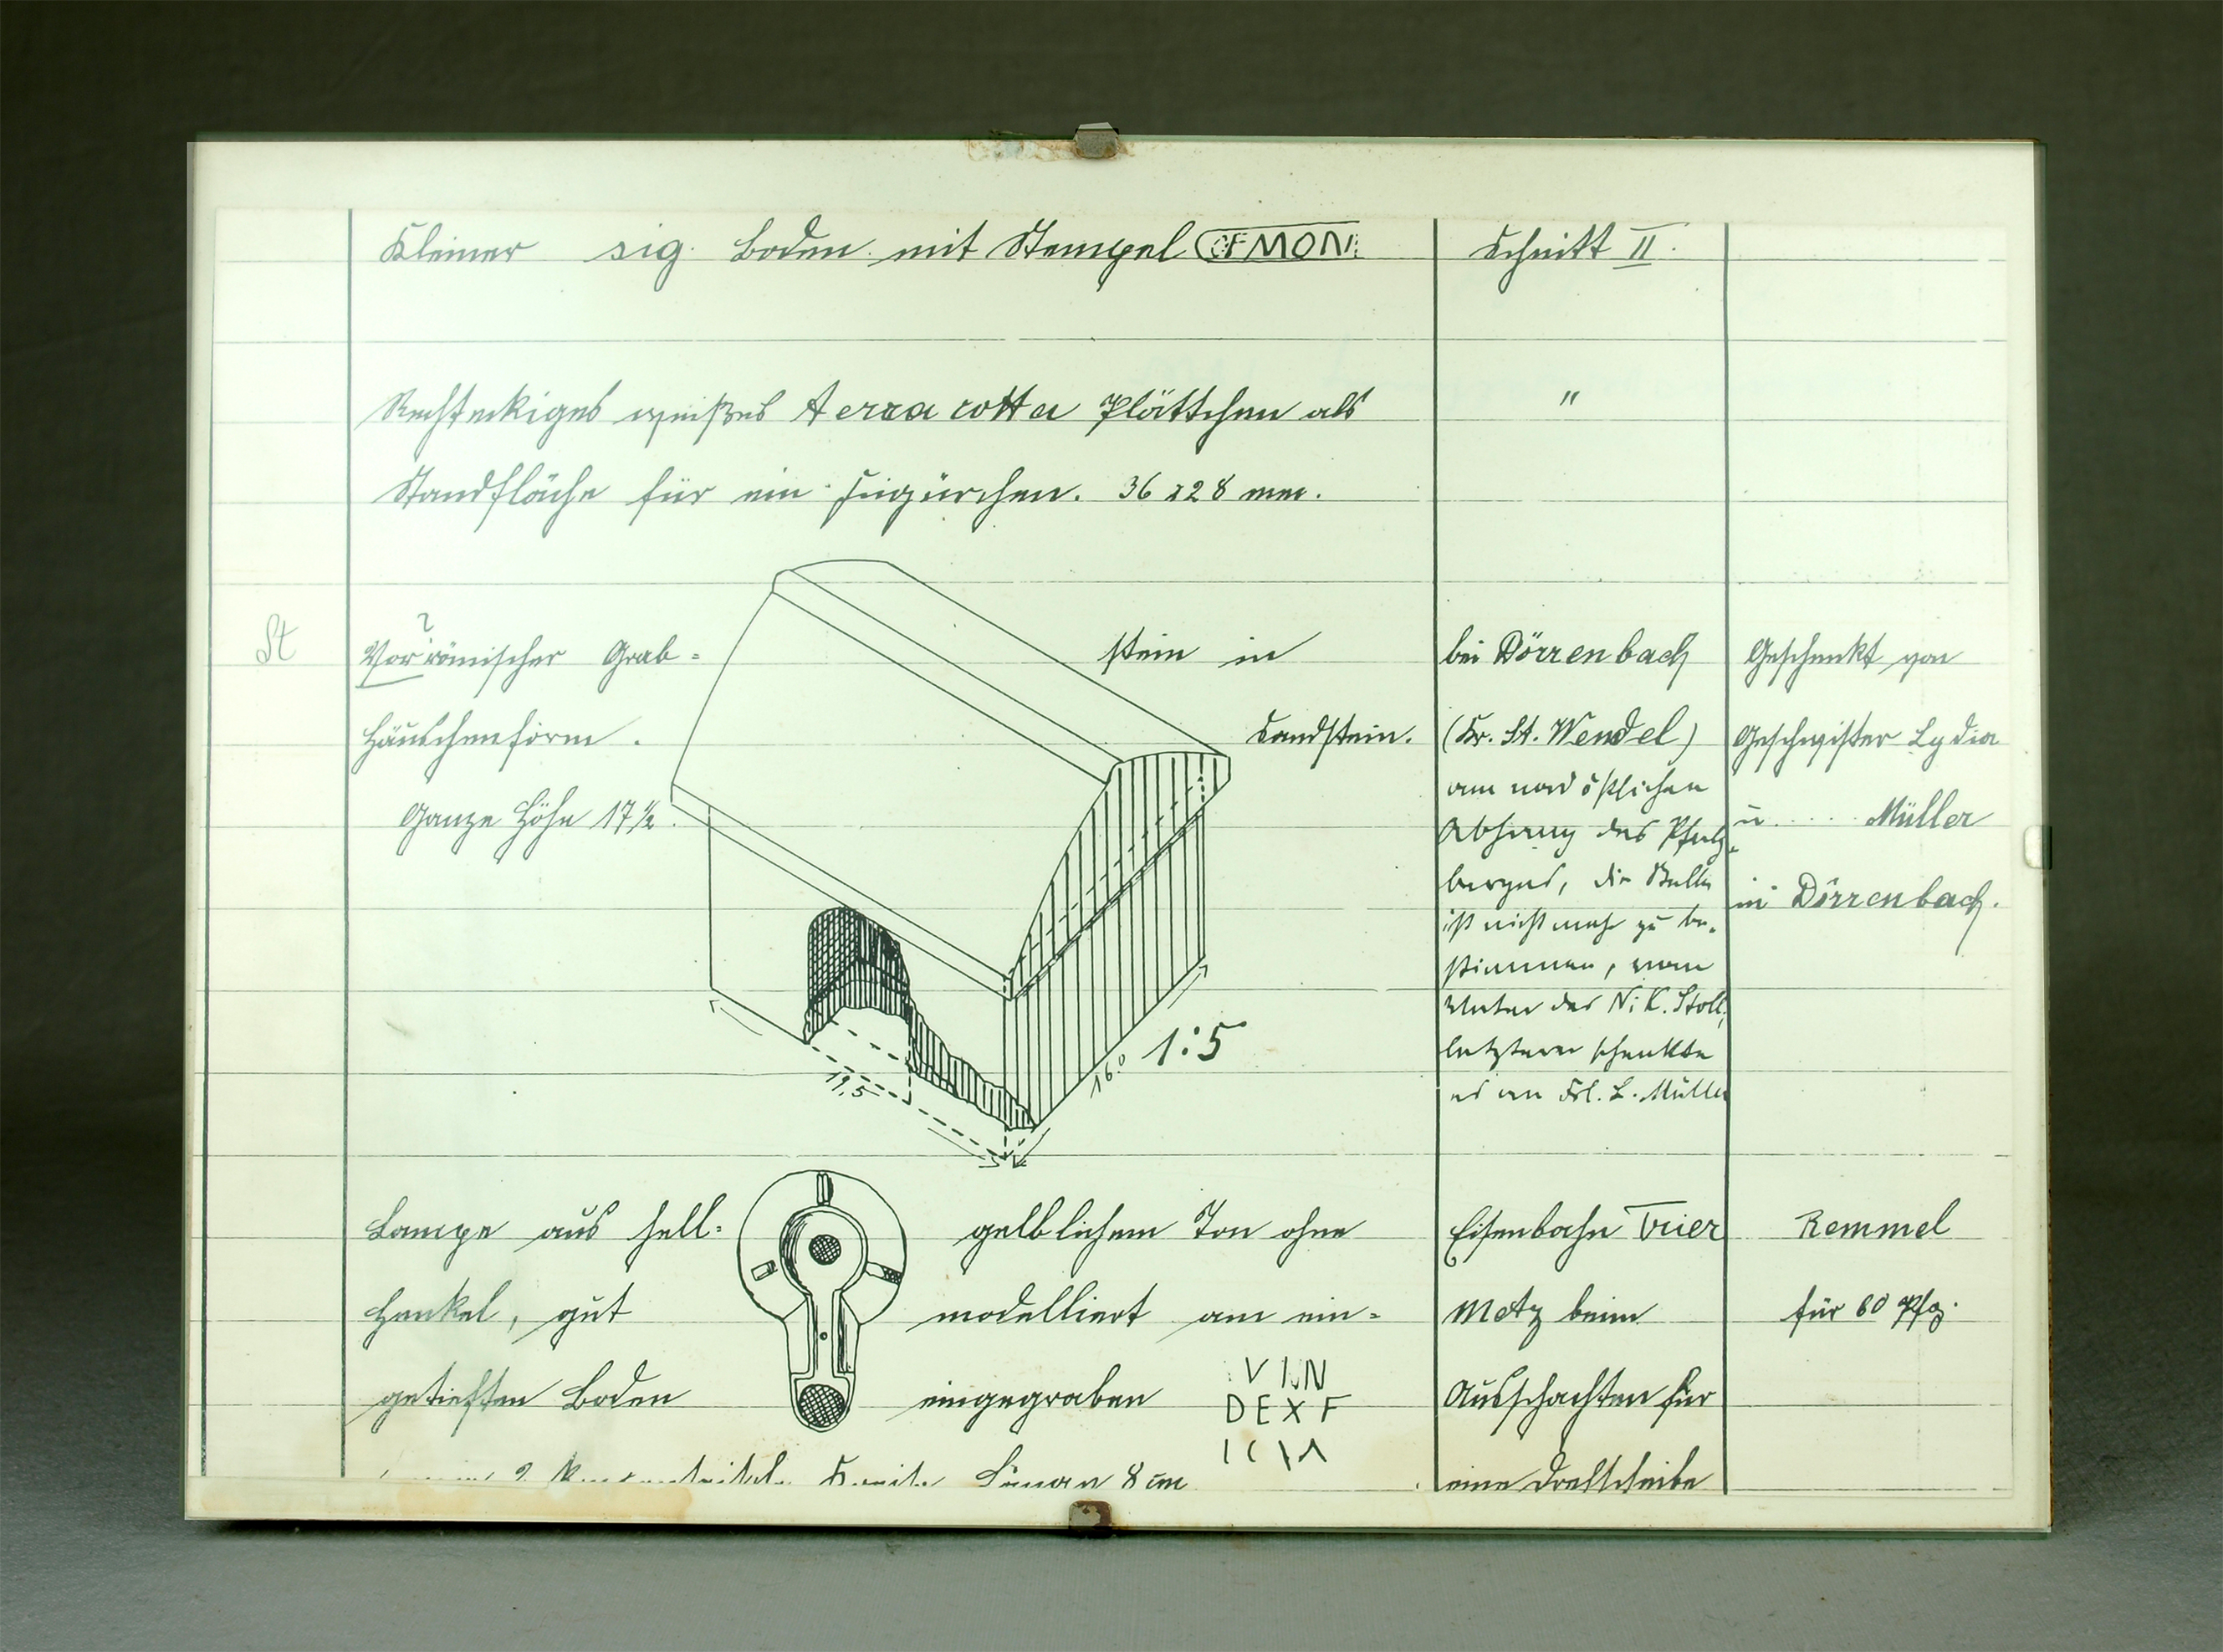 Kleiner sig. Boden mit Stempel OFMON
Schnitt II.
Rechteckiges weißes terra cotta Plättchen als
"
Standfläche für ein Figürchen. 36 x 28 mm.
St
?
Vorrömischer Grab-
stein in
Häuschenform.
Sandstein.
Ganze Höhe 17½.
19,5
16.0
1:5
bei Dörrenbach
(Kr. St. Wendel)
am nordöstlichen
Abhang des
berges, die Stelle
ist nicht mehr zu be-
stimmen, vom
Vater des N. K. Stoll,
letzterer schenkte
es an Frl. L. Müller
Geschenkt von
Geschwister Lydia
u..... Müller
in Dörrenbach.
Lampe aus hell-
gelblichem Ton ohne
Henkel, gut
modelliert am ein-
getieften Boden
eingegraben
VIN
DEX F
2 Kreise Länge 8 cm
Eisenbahn Trier
Metz beim
Ausschachten für
eine Drehscheibe
Remmel
für 60 Pfg.